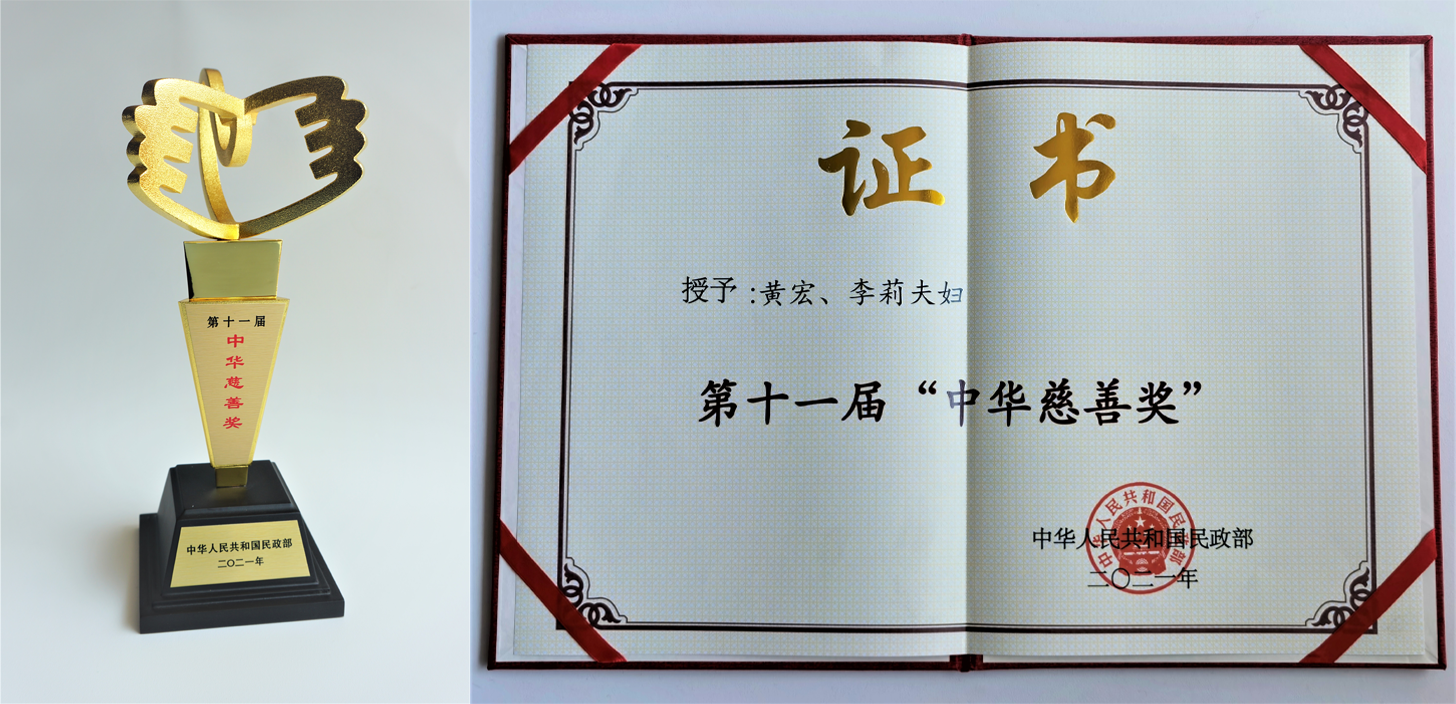 第十一届
中华慈善奖
中华人民共和国民政部
二〇二一年
证书
授予:黄宏、李莉夫妇
第十一届“中华慈善奖”
中华人民共和国民政部
二〇二一年
中华人民共和国民政部